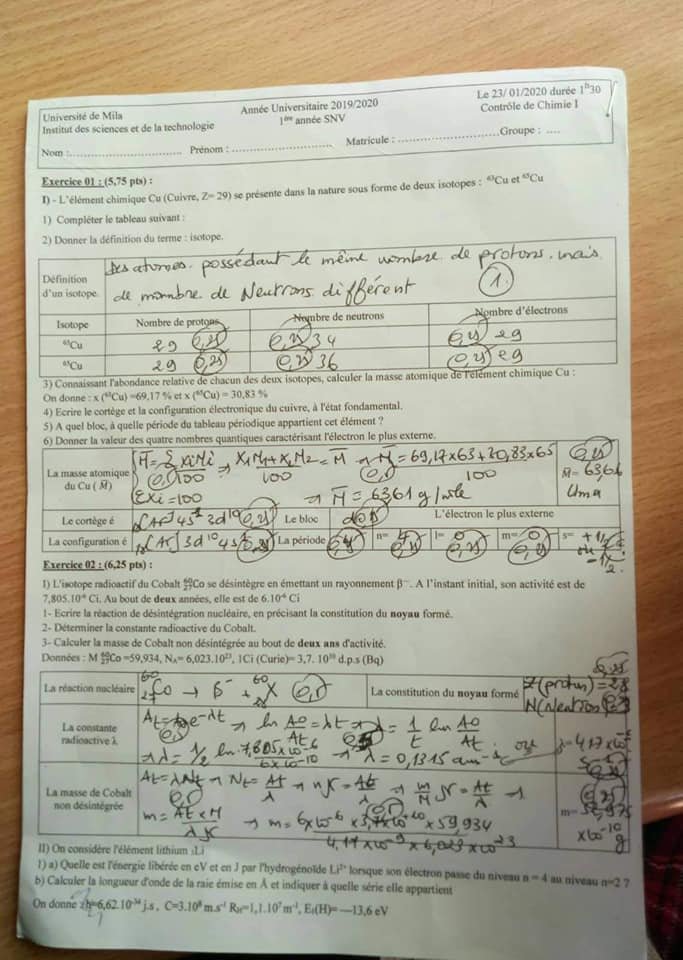 Université de Mila
Institut des sciences et de la technologie
Année Universitaire 2019/2020
1ère année SNV
Le 23/ 01/2020 durée 1h30
Contrôle de Chimie I
Nom :............ Prénom : ............ Matricule : ............Groupe : ....
Exercice 01 : (5,75 pts) :
I) - L'élément chimique Cu (Cuivre, Z= 29) se présente dans la nature sous forme de deux isotopes : ⁶³Cu et ⁶⁵Cu
1) Compléter le tableau suivant :
2) Donner la définition du terme : isotope.
Définition d'un isotope.
Des atomes possédant le même nombre de protons mais
de nombre de Neutrons différent 1.
Isotope Nombre de protons Nombre de neutrons Nombre d'électrons
⁶³Cu 29 0,25 0,25 34 0,25 29
⁶⁵Cu 29 0,25 0,25 36 0,25 29
3) Connaissant l'abondance relative de chacun des deux isotopes, calculer la masse atomique de l'élément chimique Cu :
On donne : x (⁶³Cu) =69,17 % et x (⁶⁵Cu) = 30,83 %
4) Ecrire le cortège et la configuration électronique du cuivre, à l'état fondamental.
5) A quel bloc, à quelle période du tableau périodique appartient cet élément ?
6) Donner la valeur des quatre nombres quantiques caractérisant l'électron le plus externe.
La masse atomique du Cu (M̄)
M̄ = Σ xi Mi / 100 ⇒ X₁M₁ + X₂M₂ / 100 = M̄ → M̄ = 69,17x63 + 30,83x65 / 100
Σxi = 100 → M̄ = 63,61 g/mole
0,25 M̄ = 63,61 uma
Le cortège est 18[Ar] 4s² 3d¹⁰ 0,25 Le bloc d 0,25 L'électron le plus externe
La configuration est 18[Ar] 3d¹⁰ 4s¹ 0,25 La période 4 n= 4 0,25 l= 0 0,25 m= 0 0,25 s= +1/2 ou -1/2
Exercice 02 : (6,25 pts) :
I) L'isotope radioactif du Cobalt ⁶⁰₂₇Co se désintègre en émettant un rayonnement β⁻. A l'instant initial, son activité est de
7,805.10⁻⁶ Ci. Au bout de deux années, elle est de 6.10⁻⁶ Ci
1- Ecrire la réaction de désintégration nucléaire, en précisant la constitution du noyau formé.
2- Déterminer la constante radioactive du Cobalt.
3- Calculer la masse de Cobalt non désintégrée au bout de deux ans d'activité.
Données : M ⁶⁰₂₇Co =59,934, NA= 6,023.10²³, 1Ci (Curie)= 3,7. 10¹⁰ d.p.s (Bq)
La réaction nucléaire ⁶⁰₂₇Co → β⁻ + ⁶⁰₂₈X 0,5 La constitution du noyau formé 0,25 Z(protons) = 28
La constante radioactive λ
At = A₀e^-λt → ln A₀/At = λt → λ = 1/t ln A₀/At ou
→ λ = 1/2 ln 7,805x10⁻⁶ / 6x10⁻¹⁰ → λ = 0,1315 ans⁻¹
La masse de Cobalt non désintégrée
At = λNt → Nt = At/λ → nN = At/λ → m/M N = At/λ →
m = At x M / λN → m = 6x10⁻⁶ x 3,7x10¹⁰ x 59,934 / 4,17x10⁻⁹ x 6,023x10²³
x10⁻¹⁰ g
II) On considère l'élément lithium ₃Li
1) a) Quelle est l'énergie libérée en eV et en J par l'hydrogénoïde Li²⁺ lorsque son électron passe du niveau n = 4 au niveau n=2 ?
b) Calculer la longueur d'onde de la raie émise en Å et indiquer à quelle série elle appartient
On donne : h=6,62.10⁻³⁴ j.s , C=3.10⁸ m.s⁻¹ RH=1,1.10⁷ m⁻¹, E₁(H)= —13,6 eV